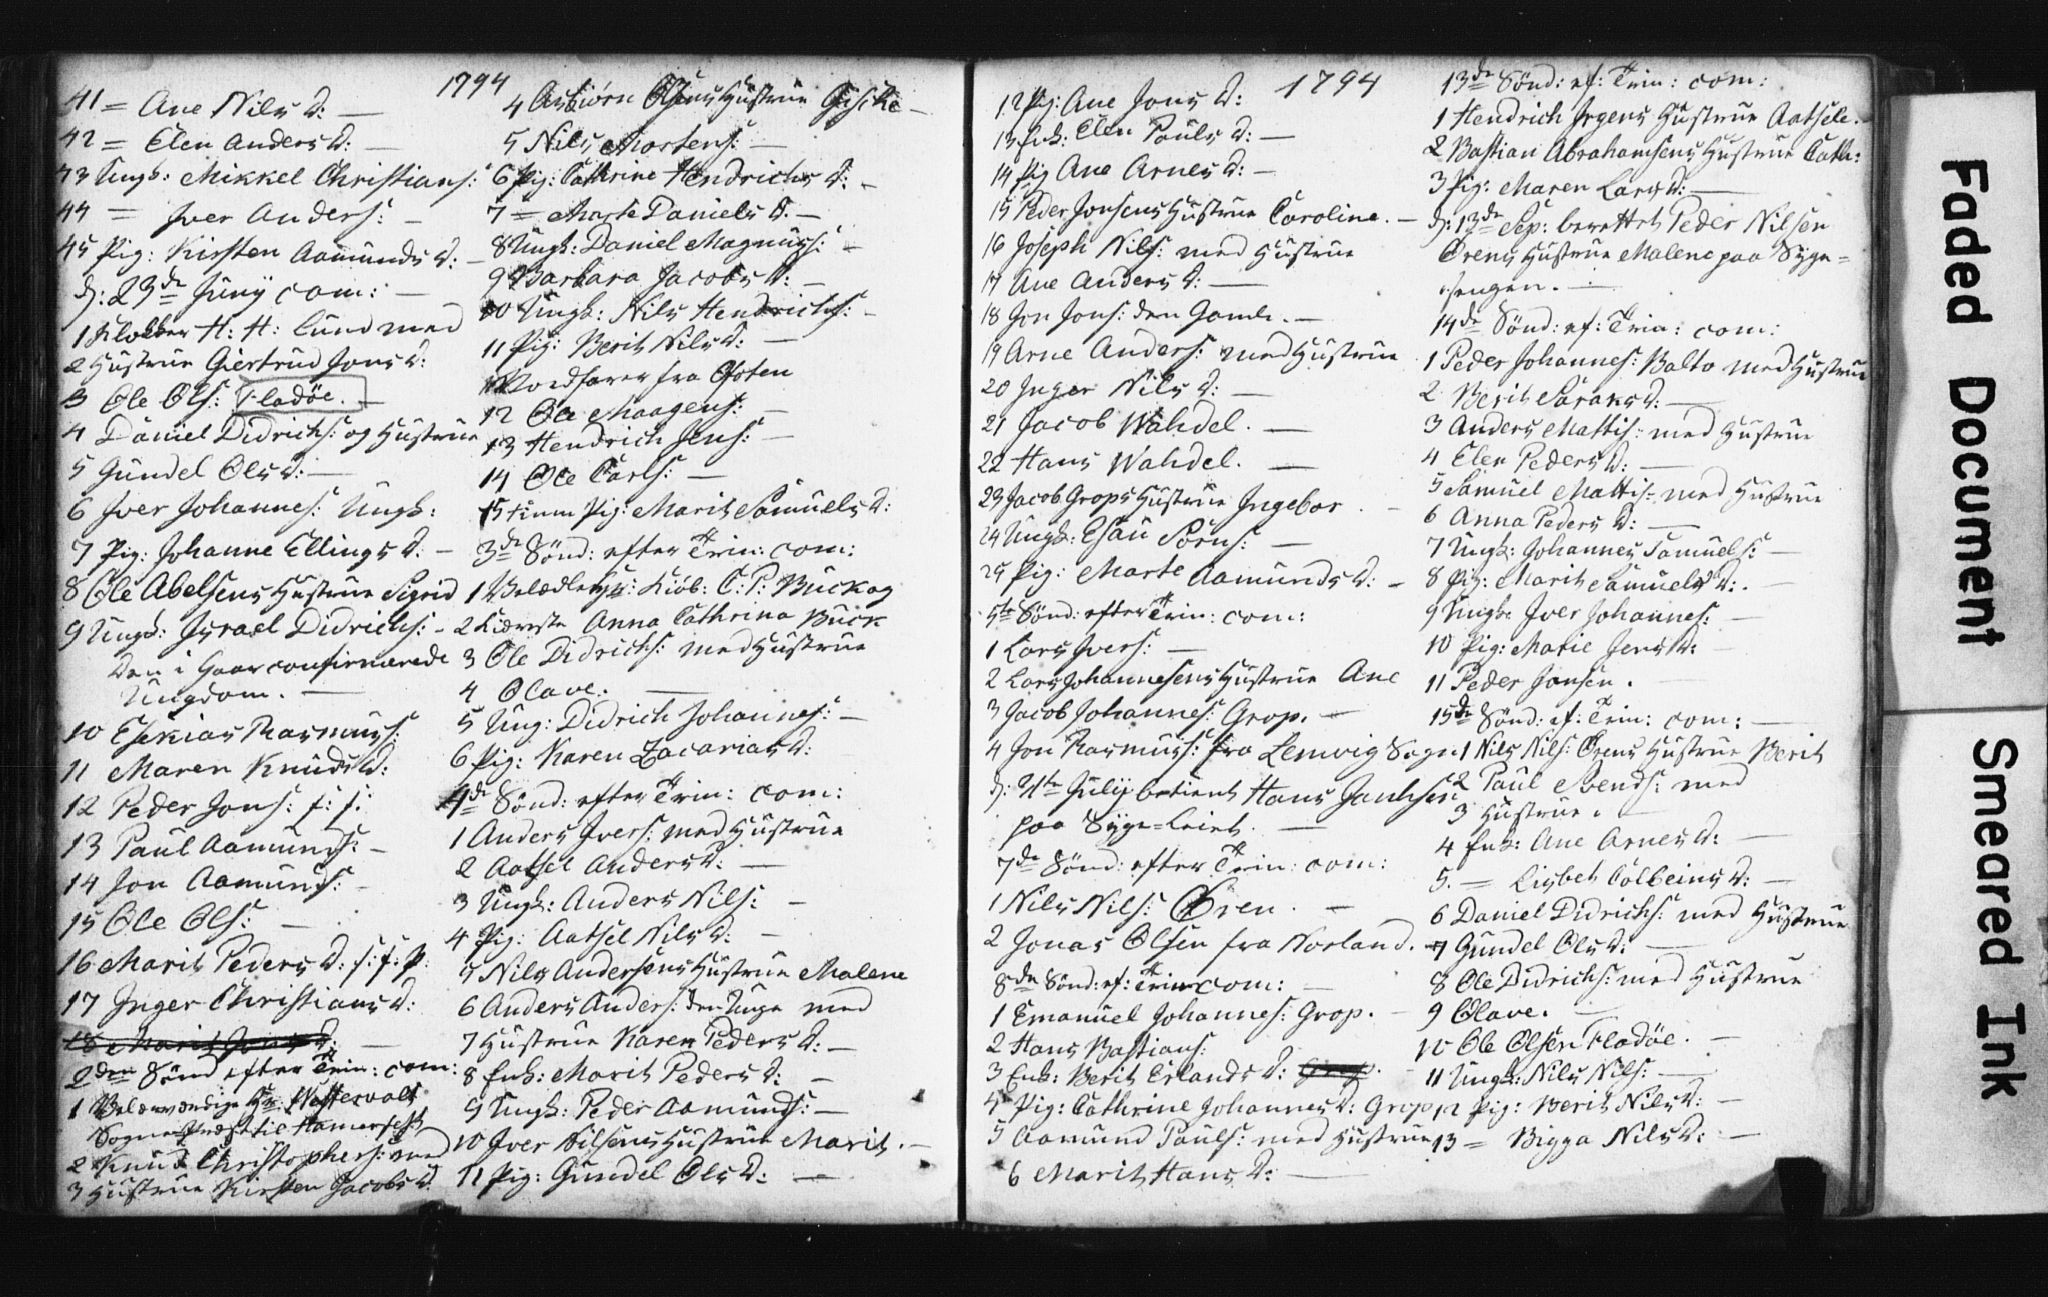 1794
41 = Ane Nils D: —
42 = Elen Anders D: —
43 Ungk: Mikkel Christians:
44 = Iver Anders: —
45 Pig: Kirsten Aamunds D: —
d: 23de Juny com: —
1 Klokker H: H: Lund med
2 Hustrue Giertrud Jons D:
3 Ole Ols: Fladöe. —
4 Daniel Didrichs: og Hustrue
5 Gundel Ols D: —
6 Iver Johannes: Ungk:
7 Pig: Johanne Ellings D. —
8 Ole Abelsens Hustrue Sigrid
9 Ungk: Israel Didrichs: —
Den i Gaar confirmerede
Ungdom. —
10 Esekias Rasmus:
11 Maren Knuds D:
12 Peder Jons: f: f:
13 Paul Aamunds: —
14 Jon Aamunds: —
15 Ole Ols: —
16 Marit Peders D: f: f: p:
17 Inger Christians D:
18 Marit Jons D: —
2den Sönd efter Trin: com:
1 Velærværdige Hr: Westervalt
Sogne Præst til Hamerfest
2 Knud Christophers: med
3 Hustrue Kirsten Jacobs D.
4 Asbiørn Olsens Hustrue —
5 Nils Mortens: —
6 Pig: Cathrine Hendrichs D: —
7 = Marte Daniels D. —
8 Ungk: Daniel Magnus: —
9 Barbara Jacobs D: —
10 Ungk: Nils Hendrichs: —
11 Pig: Berit Nils D: —
Nordfarer fra Ofoten
12 Ole Maagens: —
13 Hendrich Jens: —
14 Ole Carls: —
15 Finn Pig: Marit Samuels D:
3de Sönd: efter Trin: com:
1 Velædle Hr: Kiöb: C: P: Buck og
2 Kiæreste Anna Cathrina Buck
3 Ole Didrichs: med Hustrue
4 Olave. —
5 Ung: Didrich Johannes: —
6 Pig: Karen Zacarias D:
4de Sönd: efter Trin: com:
1 Anders Ivers: med Hustrue
2 Aatsel Anders D: —
3 Ungk: Anders Nils: —
4 Pig: Aatsel Nils D: —
5 Nils Andersens Hustrue Malene
6 Anders Anders: den Unge med
7 Hustrue Karen Peders D: —
8 Enk: Marit Peders D: —
9 Ungk: Peder Aamunds: —
10 Iver Nilsens Hustrue Marit. —
11 Pig: Gundel Ols D: —
1794
12 Pig: Ane Jons D:
13 Enk: Elen Pouls D: —
14 Pig Ane Arnes D: —
15 Peder Jonsens Hustrue Caroline. —
16 Joseph Nils: med Hustrue
17 Ane Anders D: —
18 Jon Jons: den Gamle. —
19 Arne Anders: med Hustrue
20 Inger Nils D: —
21 Jacob Wahdel. —
22 Hans Wahdel. —
23 Jacob Grops Hustrue Ingebor —
24 Ungk: Esau Sörns: —
25 Pig: Marte Aamunds D: —
5te Sönd: efter Trin: com:
1 Lars Ivers: —
2 Lars Johannesens Hustrue Ane
3 Jacob Johannes: Grop. —
4 Jon Rasmus: fra Lemvig Sogn
d: 21te July betient Hans Janksen
paa Syge=Leiet. —
7de Sönd: efter Trin: com:
1 Nils Nils: Ören. —
2 Jonas Olsen fra Norland.
8de Sönd: ef: Trin com: —
1 Emanuel Johannes: Grop. —
2 Hans Bastians:
3 Enk: Berit Erlands D: Grop. —
4 Pig: Cathrine Johannes D: Grop
5 Aamund Pauls: med Hustrue
6 Marit Hans D: —
13de Sönd: ef: Trin: com:
1 Hendrich Irgens Hustrue Aatsele.
2 Bastian Abrahamsens Hustrue Cath:
3 Pig: Maren Lars D: —
d: 13de Sep: berettet Peder Nilsen
Örens Hustrue Malene paa Syge=
sengen. —
14de Sönd: ef: Trin: com:
1 Peder Johannes: Balto med Hustrue
2 Berit Saraks D: —
3 Anders Mattis: med Hustrue
4 Elen Peders D: —
5 Samuel Mattis: med Hustrue
6 Anna Peders D: —
7 Ungk: Johannes Samuels: —
8 Pig: Marit Samuels D: —
9 Ungk: Iver Johannes: —
10 Pig: Marie Jens D: —
11 Peder Jonsen. —
15de Sönd: ef: Trin: com: —
1 Nils Nils: Örens Hustrue Berit
2 Paul Svends: med
3 Hustrue. —
4 Enk: Ane Arnes D: —
5. = Lisbet Colbeins D: —
6 Daniel Didrichs: med Hustrue
7 Gundel Ols D: —
8 Ole Didrichs: med Hustrue
9 Olave. —
10 Ole Olsen Fladöe. —
11 Ungk: Nils Nils: —
12 Pig: Berit Nils D: —
13 = Bigga Nils D: —
Faded Document
Smeared Ink